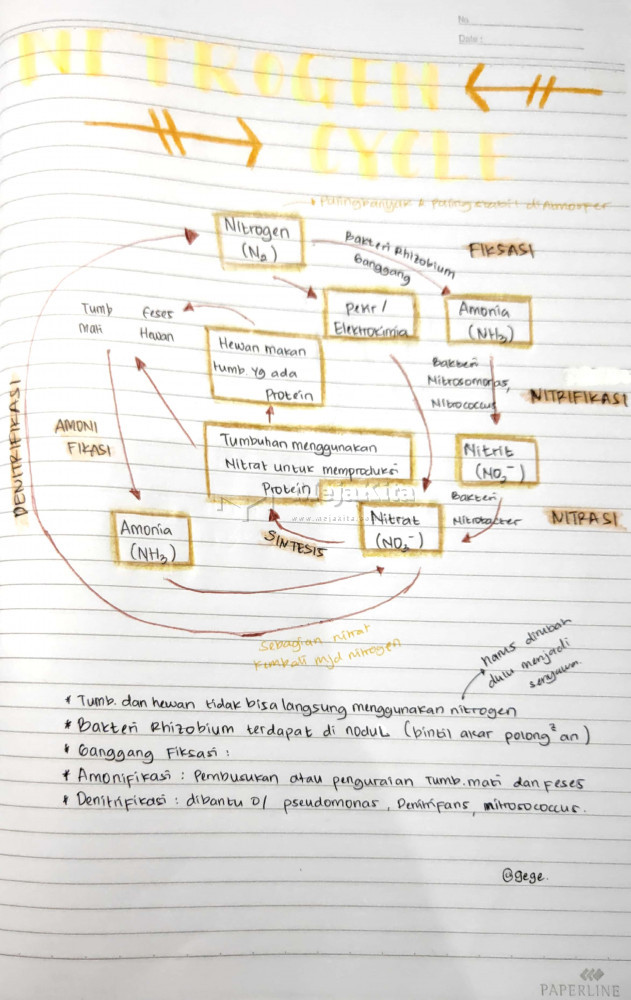 No
Date :
NITROGEN
CYCLE
* Paling banyak & Paling stabil di Atmosfer
Nitrogen
(N₂)
Bakteri Rhizobium
Ganggang
FIKSASI
Petir /
Elektrokimia
Amonia
(NH₃)
Tumb
mati
Feses
Hewan
Hewan makan
tumb. yg ada
Protein
Bakteri
Nitrosomonas,
Nitrococcus
NITRIFIKASI
DENITRIFIKASI
AMONI
FIKASI
Tumbuhan menggunakan
Nitrat untuk memproduksi
Protein
Nitrit
(NO₂⁻)
MejaKita
www.mejakita.com
Bakteri
Nitrobacter
NITRASI
Amonia
(NH₃)
SINTESIS
Nitrat
(NO₃⁻)
Sebagian nitrat
kembali mjd nitrogen
harus dirubah
dulu menjadi
senyawa.
* Tumb. dan hewan tidak bisa langsung menggunakan nitrogen
* Bakteri Rhizobium terdapat di nodul (bintil akar polong² an)
* Ganggang Fiksasi :
* Amonifikasi : Pembusukan atau penguraian Tumb. mati dan feses
* Denitrifikasi : dibantu o/ pseudomonas, Denitrifans, nitrosococcus.
@gege.
PAPERLINE